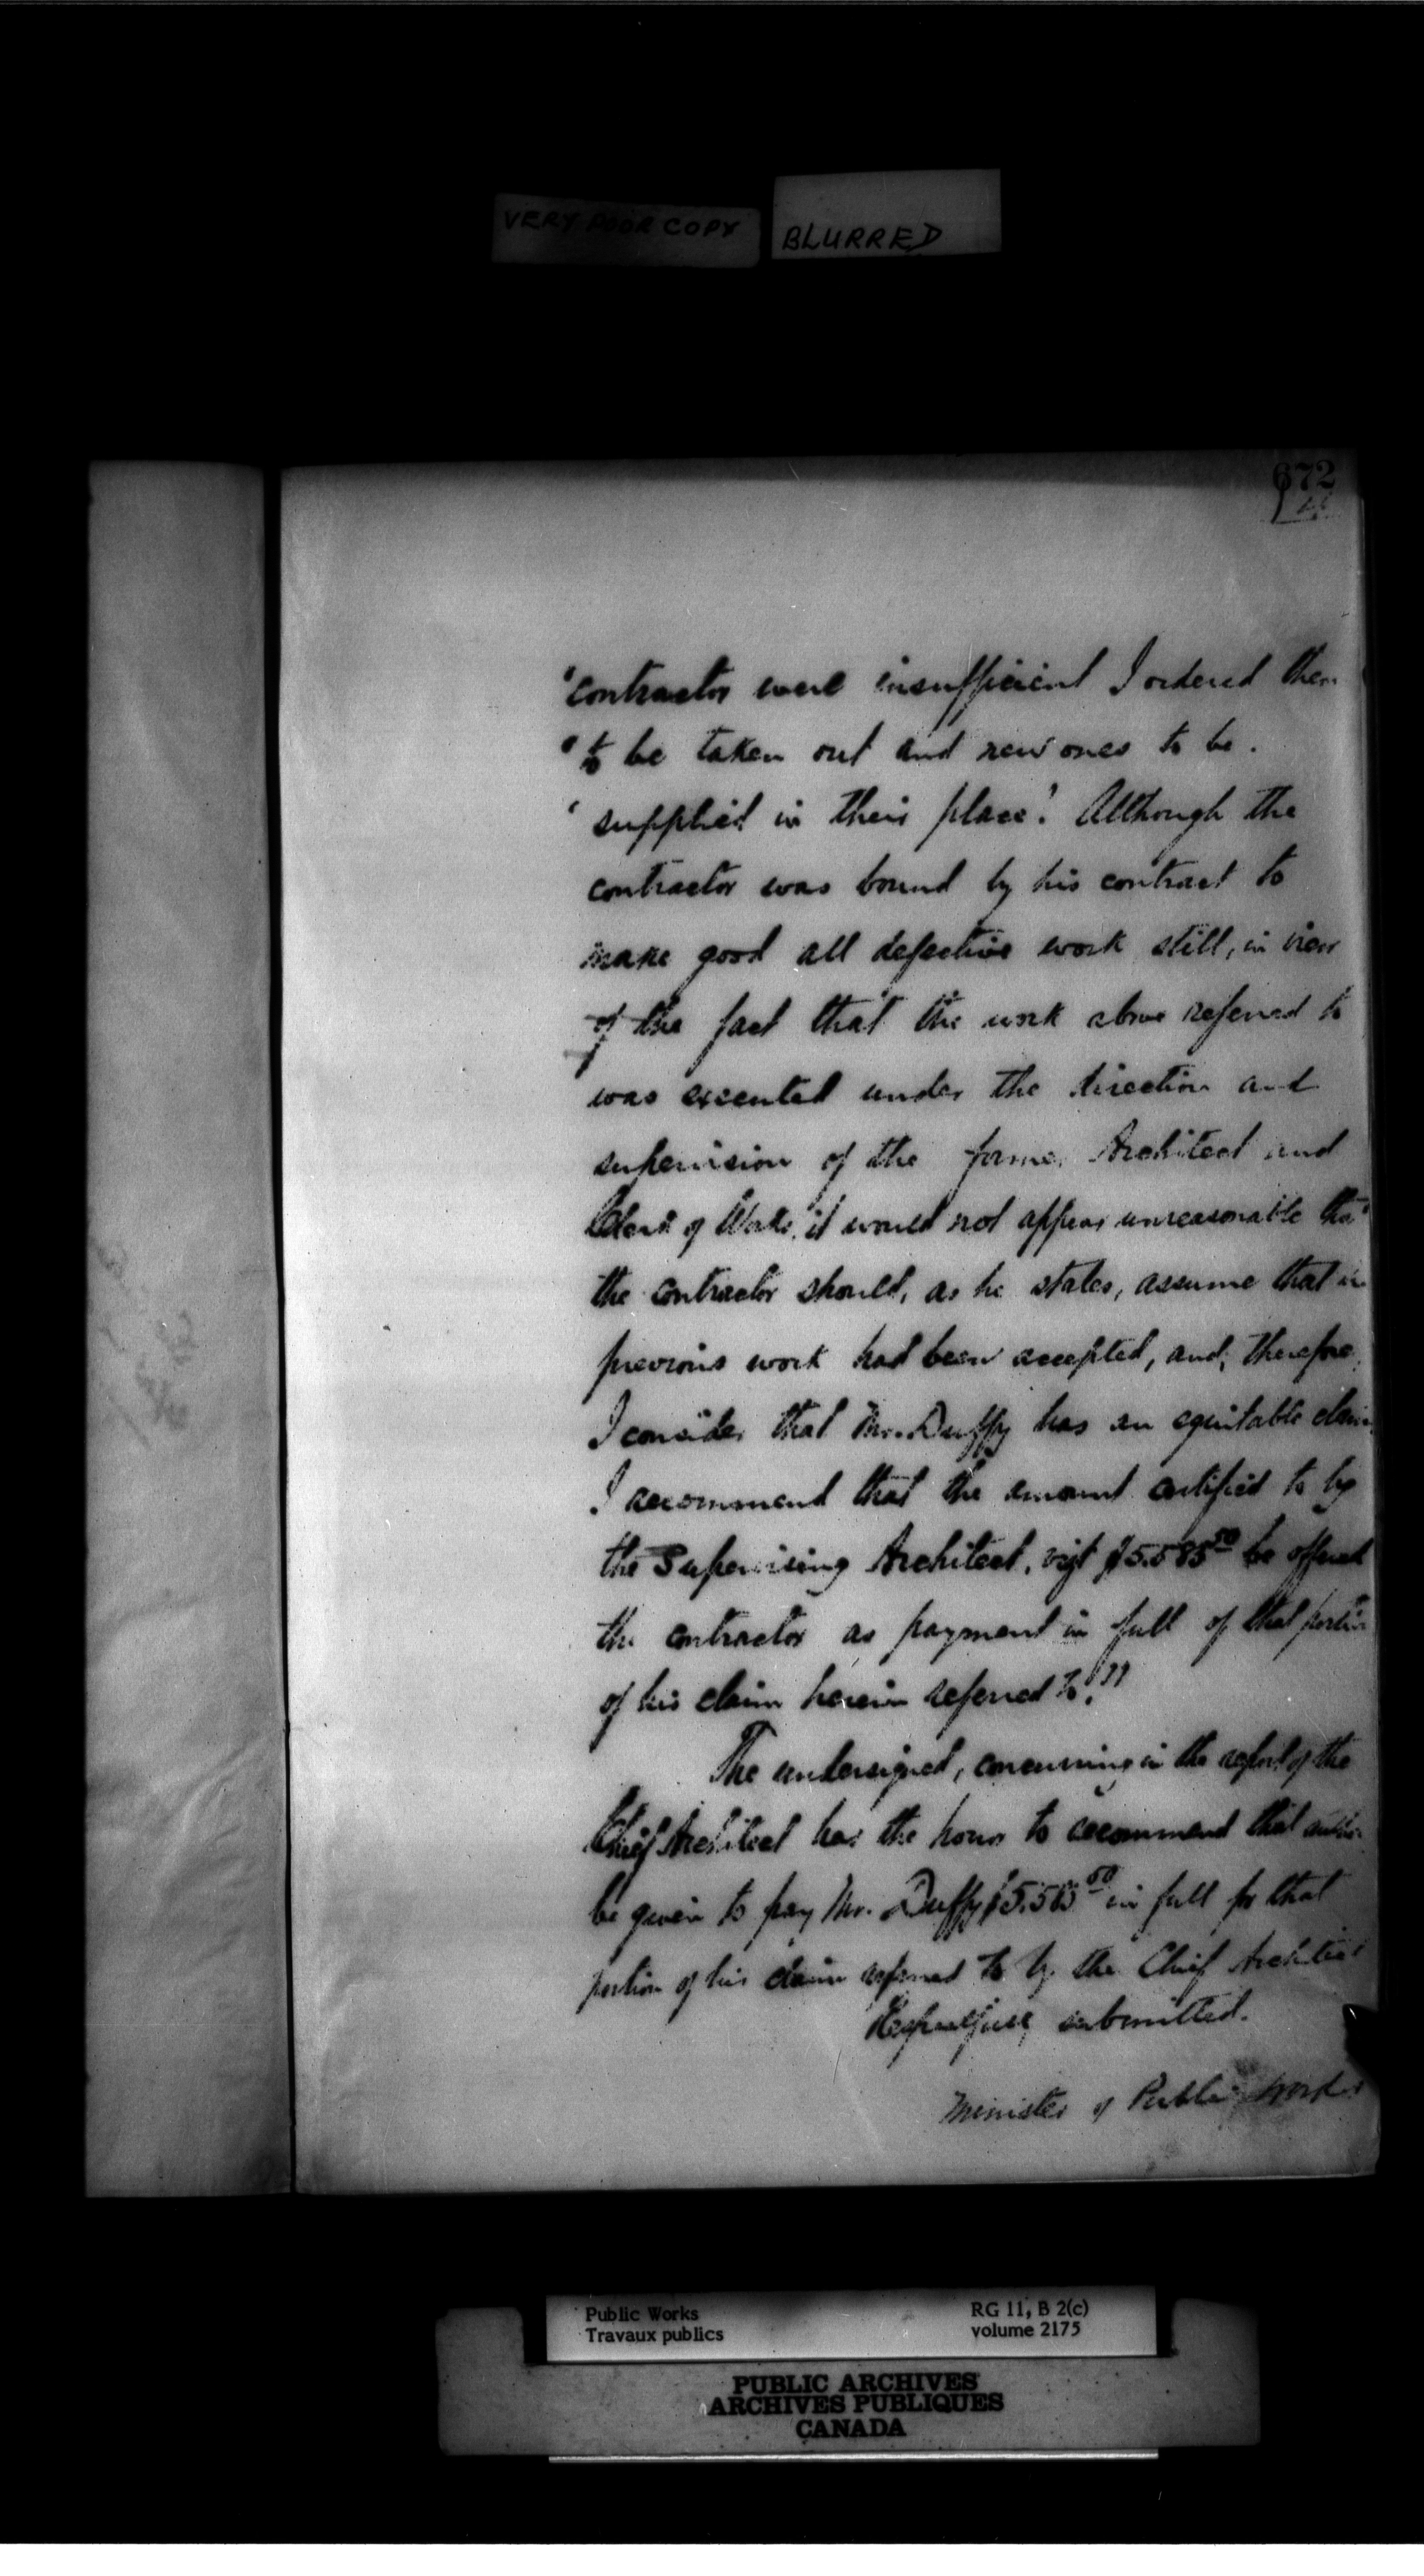 VERY POOR COPY
BLURRED
672
"contractor were insufficient I ordered them
"to be taken out and new ones to be
"supplied in their place". Although the
contractor was bound by his contract to
make good all defective work still, in view
of the fact that the work above referred to
was executed under the direction and
supervision of the former Architect and
Clerk of Works, it would not appear unreasonable that
the contractor should, as he states, assume that
previous work had been accepted, and, therefore,
I consider that Mr. Duffy has an equitable claim
I recommend that the amount certified to by
the Supervising Architect, vizt be offered
the contractor as payment in full of that portion
of his claim herein referred to."
The undersigned, concurring in the report of the
Chief Architect has the honor to recommend that
be given to pay Mr. Duffy in full for that
portion of his claim referred to by the Chief Architect
Respectfully submitted.
Minister of Public Works
Public Works
Travaux publics
RG 11, B 2(c)
volume 2175
PUBLIC ARCHIVES
ARCHIVES PUBLIQUES
CANADA